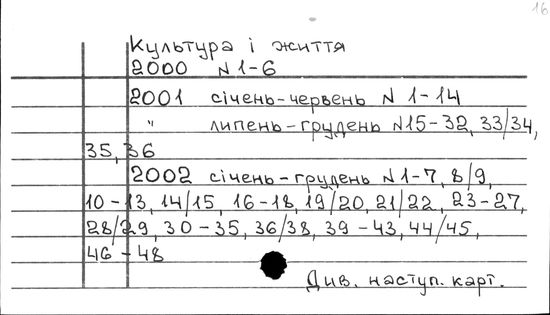 16
Культура і життя
2000 N 1-6
2001 січень-червень N 1-14
" липень-грудень N15-32, 33/34,
35, 36
2002 січень-грудень N 1-7, 8/9,
10-13, 14/15, 16-18, 19/20, 21/22, 23-27,
28/29, 30-35, 36/38, 39-43, 44/45,
46-48
Див. наступ. карт.